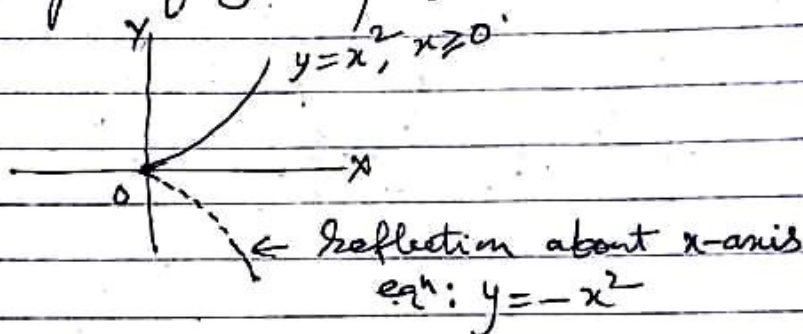 Y
y=x², x≥0
X
0
← Reflection about x-axis
eqⁿ: y=-x²